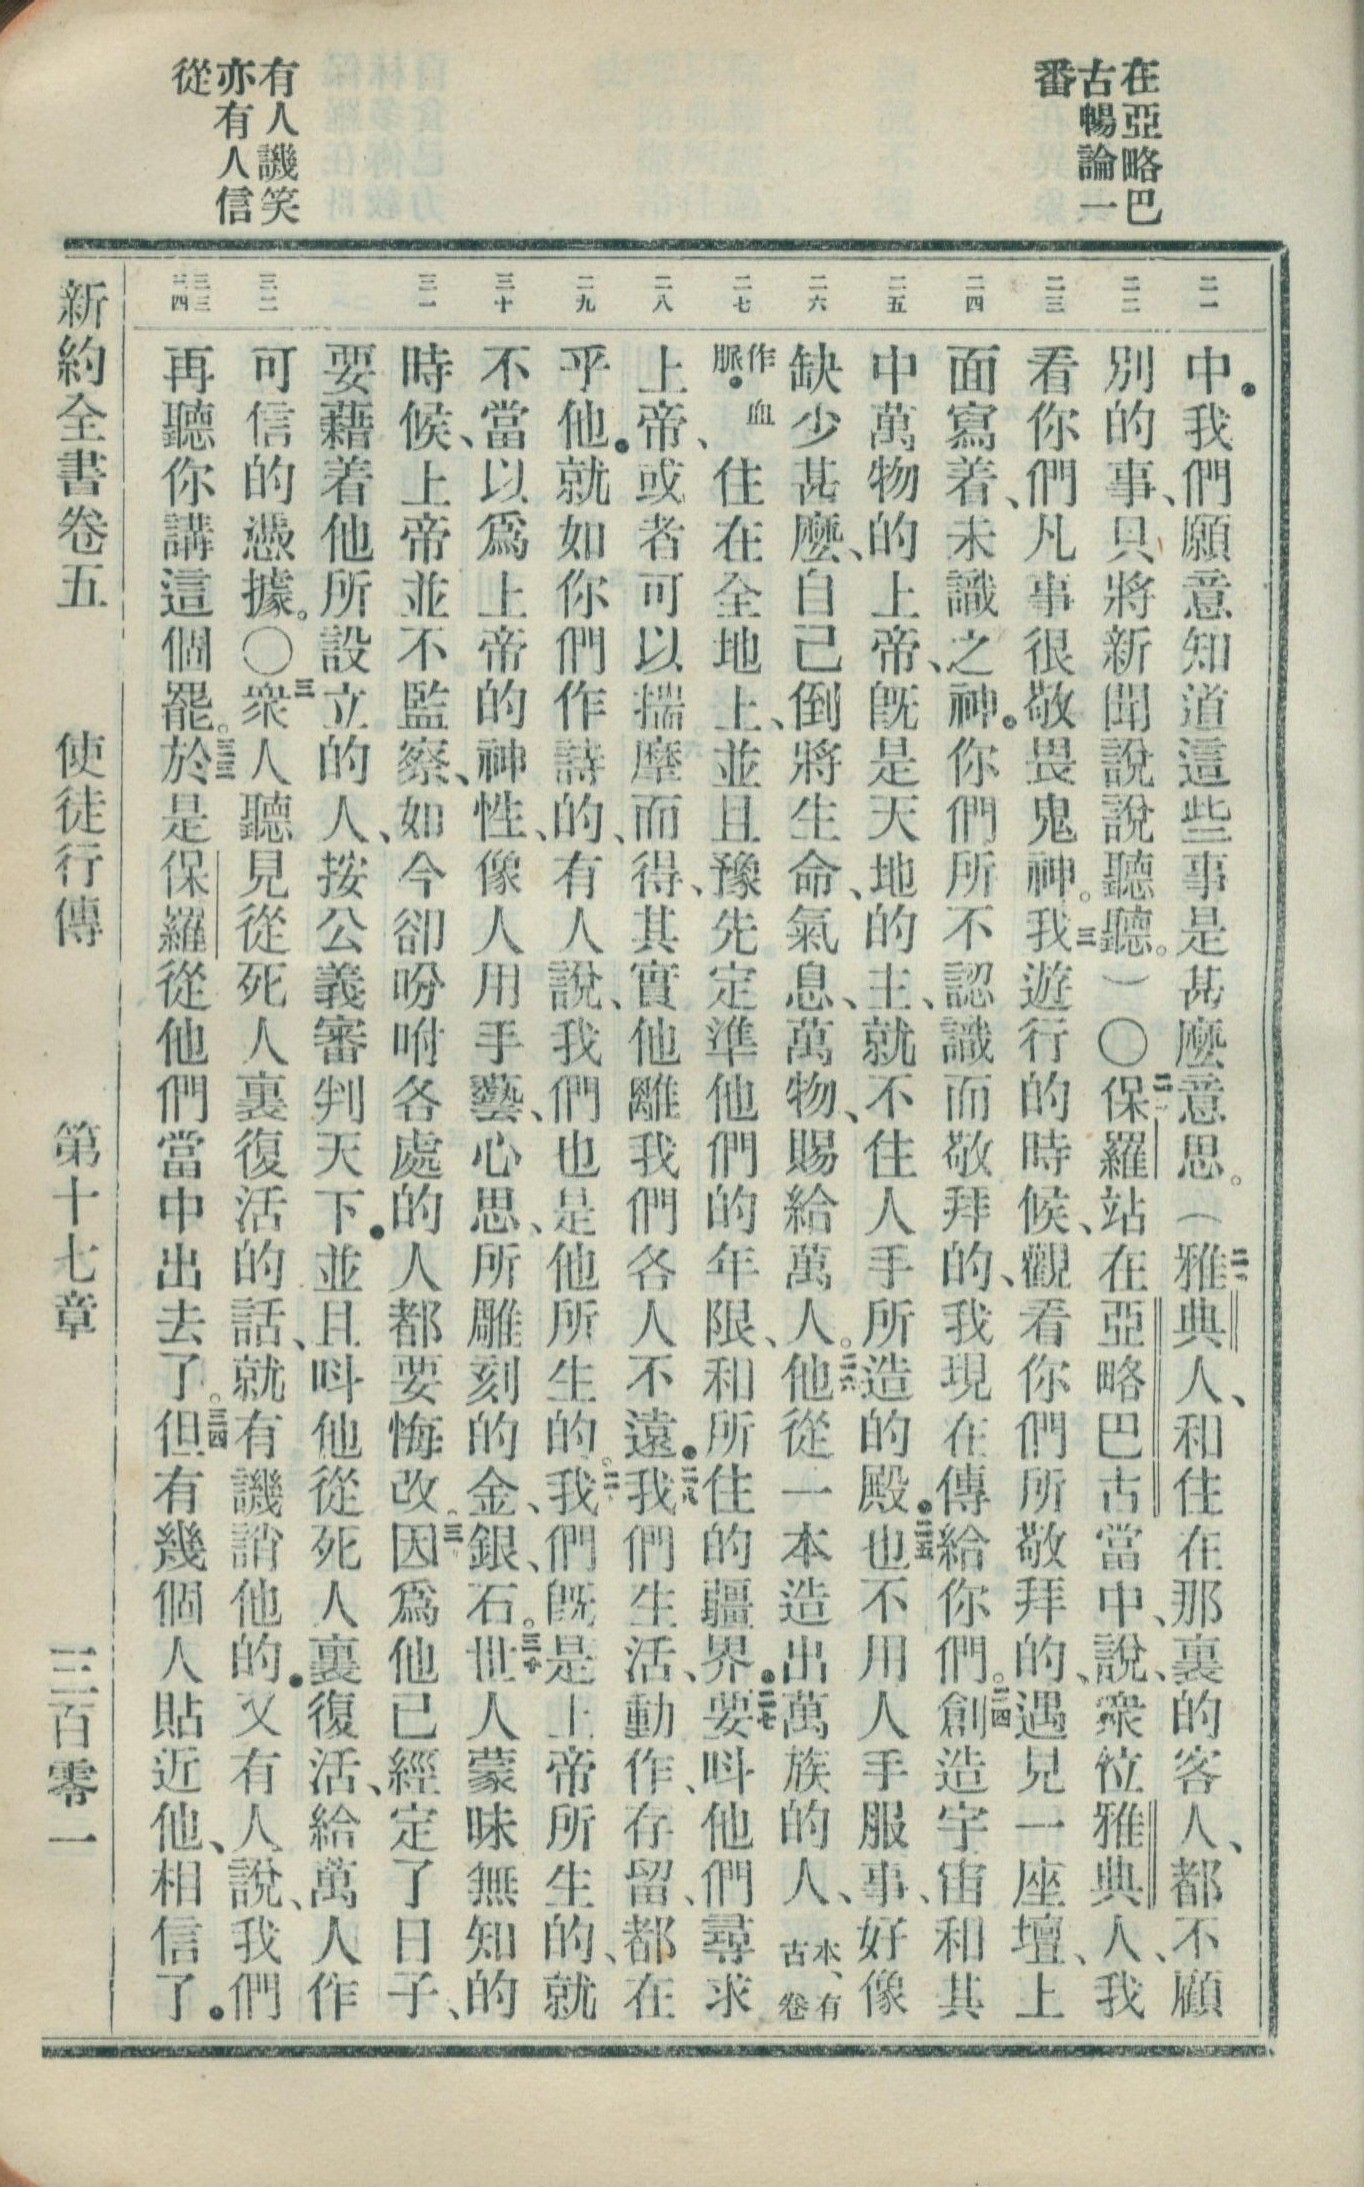 在亞略巴
古暢論一
番
有人譏笑
亦有人信
從
二一
二二
二三
二四
二五
二六
二七
二八
二九
三十
三一
三二
三三
三四
中．我們願意知道這些事是甚麼意思。（二一雅典人、和住在那裏的客人、都不顧
別的事、只將新聞說說聽聽。）〇二二保羅站在亞略巴古當中、說、衆位雅典人、我
看你們凡事很敬畏鬼神。二三我遊行的時候、觀看你們所敬拜的、遇見一座壇、上
面寫着、未識之神．你們所不認識而敬拜的、我現在傳給你們。二四創造宇宙和其
中萬物的上帝、旣是天地的主、就不住人手所造的殿．二五也不用人手服事、好像
缺少甚麼、自己倒將生命、氣息、萬物、賜給萬人。二六他從一本造出萬族的人、本、有古卷
作血脈．住在全地上、並且豫先定準他們的年限、和所住的疆界．二七要呌他們尋求
上帝、或者可以揣摩而得、其實他離我們各人不遠．二八我們生活、動作、存留、都在
乎他．就如你們作詩的、有人說、我們也是他所生的。二九我們旣是上帝所生的、就
不當以爲上帝的神性、像人用手藝、心思、所雕刻的金、銀、石。三十世人蒙昧無知的
時候、上帝並不監察、如今卻吩咐各處的人都要悔改。三一因爲他已經定了日子、
要藉着他所設立的人、按公義審判天下．並且呌他從死人裏復活、給萬人作
可信的憑據。〇三二衆人聽見從死人裏復活的話、就有譏誚他的．又有人說、我們
再聽你講這個罷。三三於是保羅從他們當中出去了。三四但有幾個人貼近他、相信了．
新約全書卷五　使徒行傳　第十七章　三百零一